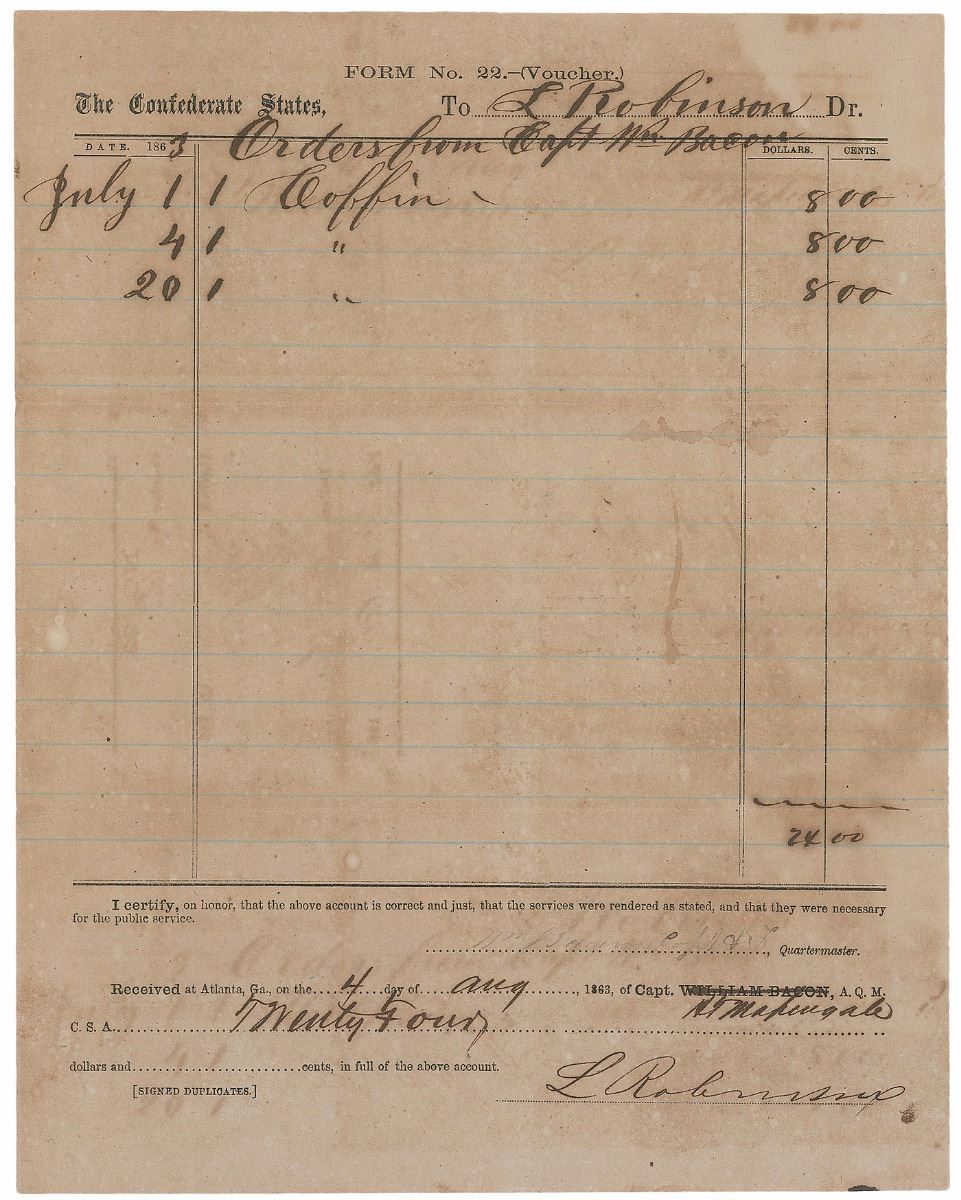 FORM No. 22.—(Voucher.)
The Confederate States, To L Robinson Dr.
DATE. 1863 Orders from Capt Wm Bacon DOLLARS. CENTS.
July 1 1 Coffin 8 00
4 1 " 8 00
20 1 " 8 00
24 00
I certify, on honor, that the above account is correct and just, that the services were rendered as stated, and that they were necessary
for the public service.
Wm Ba, Quartermaster.
Received at Atlanta, Ga., on the 4 day of aug, 1863, of Capt. WILLIAM BACON, A. Q. M.
C. S. A. Twenty Four
dollars and cents, in full of the above account.
[SIGNED DUPLICATES.] L Robinson